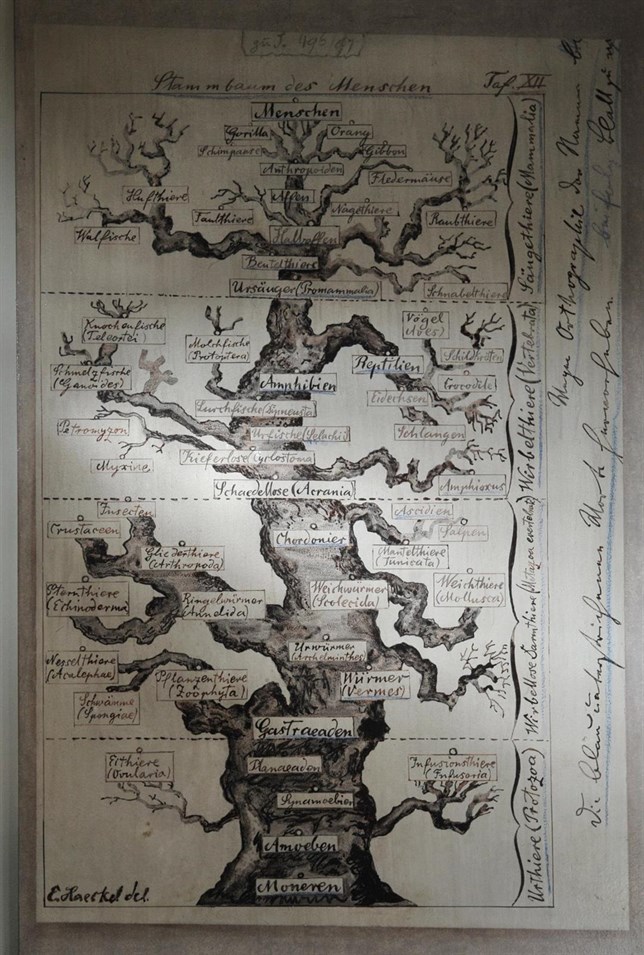 (zu S. 495/97)
Stammbaum des Menschen
Taf. XII
Menschen
Gorilla
Orang
Schimpanse
Gibbon
Anthropoiden
Fledermäuse
Hufthiere
Affen
Faulthiere
Nagethiere
Raubthiere
Walfische
Halbaffen
Beutelthiere
Ursäuger (Promammalia)
Schnabelthiere
Säugethiere (Mammalia)
Knochenfische
(Teleostei)
Molchfische
(Protoptera)
Vögel
(Aves)
Schildkröten
Schmelzfische
(Ganoides)
Amphibien
Reptilien
Crocodile
Eidechsen
Lurchfische (Dipneusta)
Petromyzon
Urfische (Selachii)
Schlangen
Kieferlose (Cyclostoma)
Myxine
Schaedellose (Acrania)
Amphioxus
Wirbelthiere (Vertebrata)
Insecten
Ascidien
Crustaceen
Chordonier
Salpen
Gliederthiere
(Arthropoda)
Mantelthiere
(Tunicata)
Sternthiere
(Echinoderma)
Ringelwürmer
(Annelida)
Weichwürmer
(Scolecida)
Weichthiere
(Mollusca)
Urwürmer
(Archelminthes)
Nesselthiere
(Acalephae)
Pflanzenthiere
(Zoophyta)
Würmer
(Vermes)
Schwämme
(Spongiae)
Gastraeaden
Wirbellose Darmthiere
Eithiere
(Ovularia)
Planaeaden
Infusionsthiere
(Infusoria)
Synamoebien
Amoeben
Moneren
Urthiere (Protozoa)
E. Haeckel del.
Wegen Orthographie der Namen
Die blau unterstrichenen Worte hervorheben.